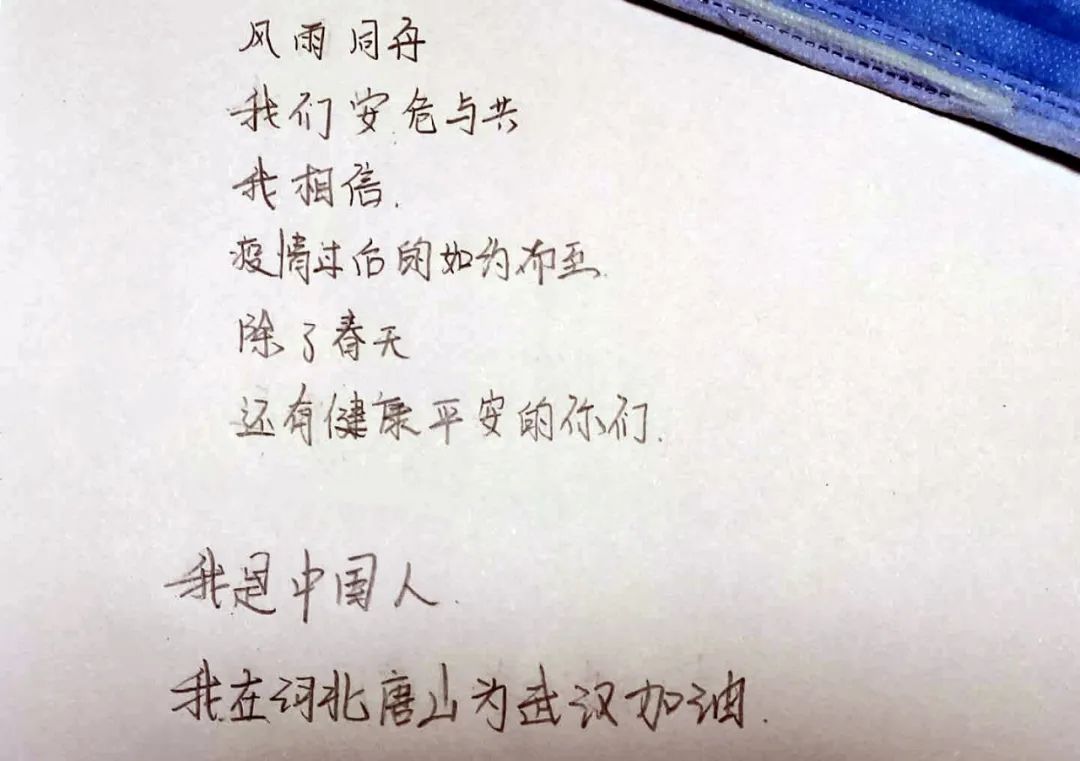 风雨同舟
我们安危与共
我相信.
疫情过后的如约而至.
除了春天
还有健康平安的你们.
我是中国人.
我在河北唐山为武汉加油.